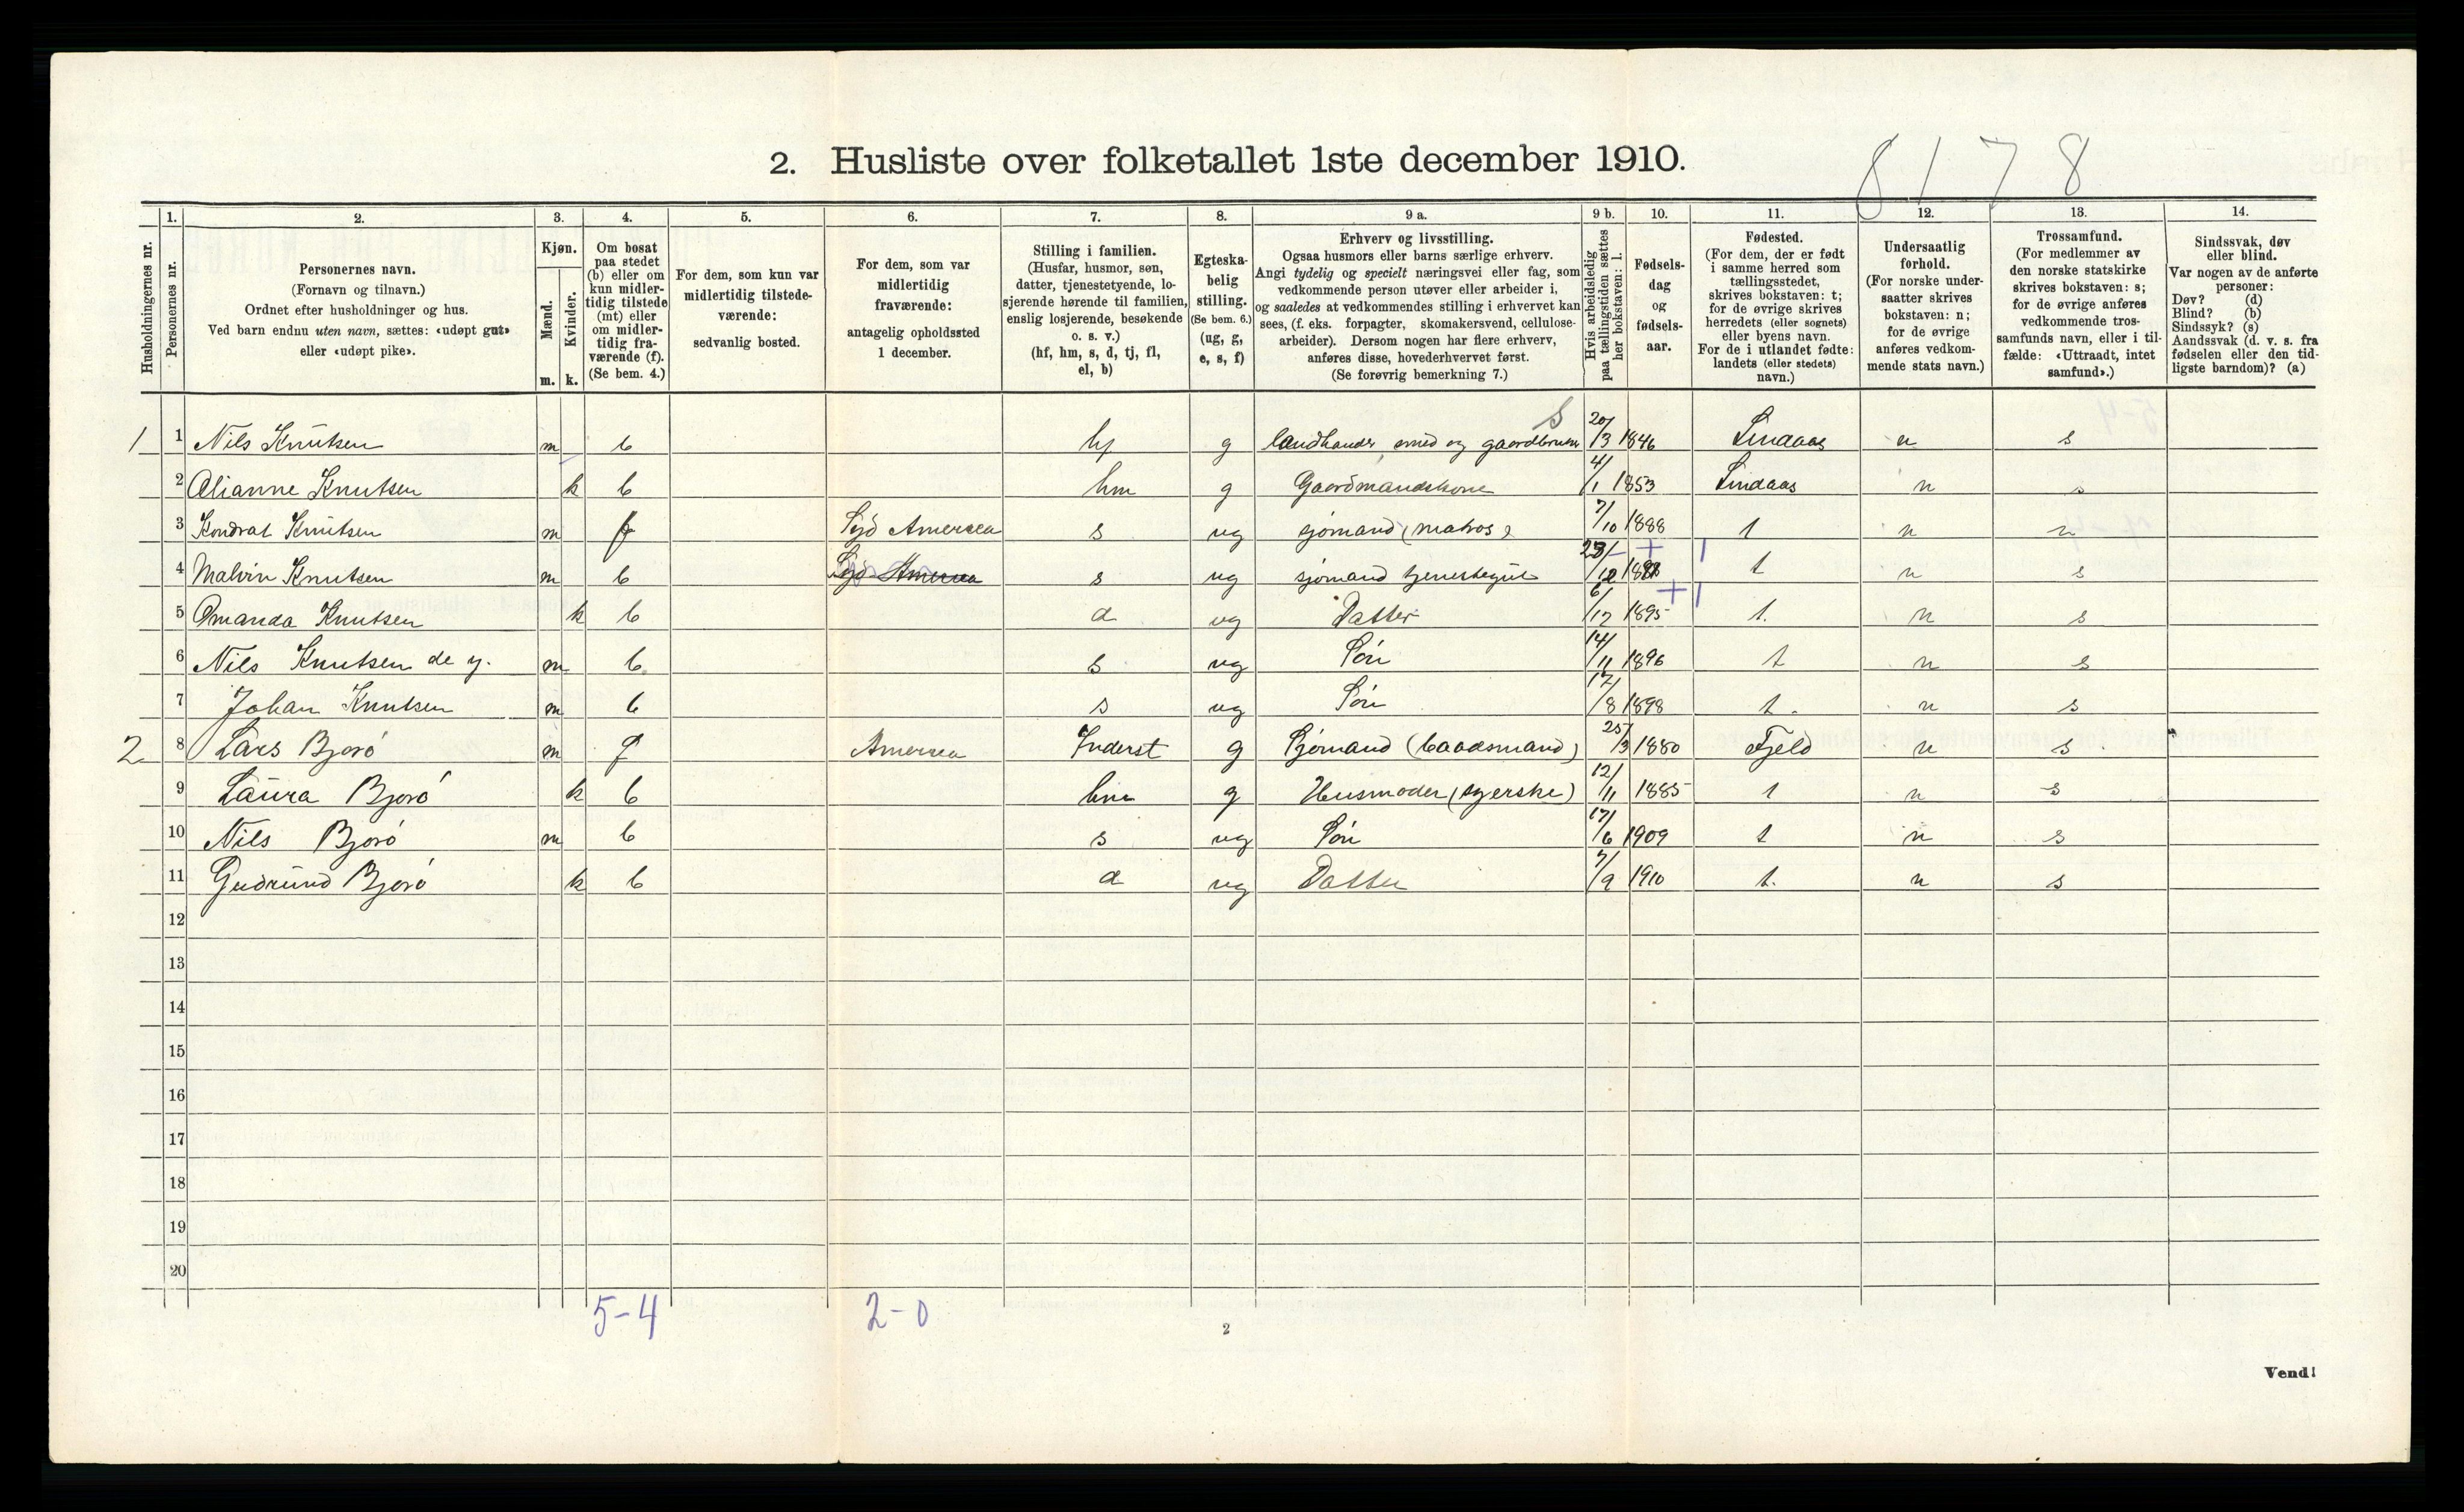 8178
2. Husliste over folketallet 1ste december 1910.
Husholdningernes nr.
1. Personernes nr.
2. Personernes navn.
(Fornavn og tilnavn.)
Ordnet efter husholdninger og hus.
Ved barn endnu uten navn, sættes: «udøpt gut»
eller «udøpt pike».
3. Kjøn.
Mænd. Kvinder.
m. k.
4. Om bosat
paa stedet
(b) eller om
kun midler-
tidig tilstede
(mt) eller
om midler-
tidig fra-
værende (f).
(Se bem. 4.)
5. For dem, som kun var
midlertidig tilstede-
værende:
sedvanlig bosted.
6. For dem, som var
midlertidig
fraværende:
antagelig opholdssted
1 december.
7. Stilling i familien.
(Husfar, husmor, søn,
datter, tjenestetyende, lo-
sjerende hørende til familien,
enslig losjerende, besøkende
o. s. v.)
(hf, hm, s, d, tj, fl,
el, b)
8. Egteska-
belig
stilling.
(Se bem. 6.)
(ug, g,
e, s, f)
9 a. Erhverv og livsstilling.
Ogsaa husmors eller barns særlige erhverv.
Angi tydelig og specielt næringsvei eller fag, som
vedkommende person utøver eller arbeider i,
og saaledes at vedkommendes stilling i erhvervet kan
sees, (f. eks. forpagter, skomakersvend, cellulose-
arbeider). Dersom nogen har flere erhverv,
anføres disse, hovederhvervet først.
(Se forøvrig bemerkning 7.)
9 b. Hvis arbeidsledig
paa tællingstiden sættes
her bokstaven: l.
10. Fødsels-
dag
og
fødsels-
aar.
11. Fødested.
(For dem, der er født
i samme herred som
tællingsstedet,
skrives bokstaven: t;
for de øvrige skrives
herredets (eller sognets)
eller byens navn.
For de i utlandet fødte:
landets (eller stedets)
navn.)
12. Undersaatlig
forhold.
(For norske under-
saatter skrives
bokstaven: n;
for de øvrige
anføres vedkom-
mende stats navn.)
13. Trossamfund.
(For medlemmer av
den norske statskirke
skrives bokstaven: s;
for de øvrige anføres
vedkommende tros-
samfunds navn, eller i til-
fælde: «Uttraadt, intet
samfund».)
14. Sindssvak, døv
eller blind.
Var nogen av de anførte
personer:
Døv? (d)
Blind? (b)
Sindssyk? (s)
Aandssvak (d. v. s. fra
fødselen eller den tid-
ligste barndom)? (a)
1 1 Nils Knutsen m b hf g landhandler, smed og gaardbruker 20/3 1846 Lindaas n s
2 Alianne Knutsen k b hm g Gaardmandskone 4/1 1853 Lindaas n s
3 Kondrat Knutsen m f Syd Amerea s ug sjømand (matros) 7/10 1888 t n
4 Malvin Knutsen m b Syd Amerea s ug sjømand tjenestegut t n s
5 Amanda Knutsen k b d ug Datter 6/12 1895 t. n s
6 Nils Knutsen de y. m b s ug Søn 14/11 1896 t n s
7 Johan Knutsen m b s ug Søn 17/8 1898 t. n s
2 8 Lars Bjorö m f Amerea Inderst g Sjømand (baadsmand) 25/3 1880 Fjeld n s
9 Laura Bjorö k b hm g Husmoder (syerske) 12/11 1885 t n s
10 Nils Bjorö m b s ug Søn 17/6 1909 t n s
11 Gudrund Bjorö k b d ug Datter 7/9 1910 t. n s
12
13
14
15
16
17
18
19
20
5-4 2-0
2
Vend!